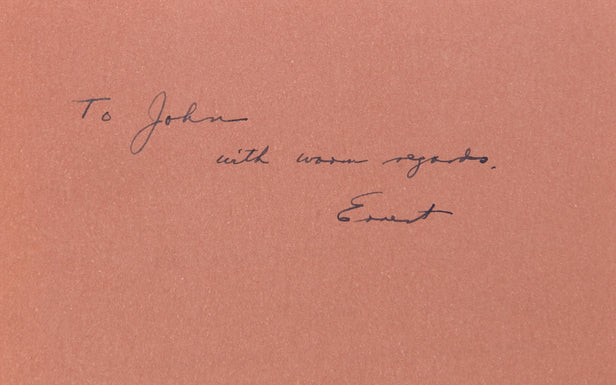 To John
with warm regards.
Ernest